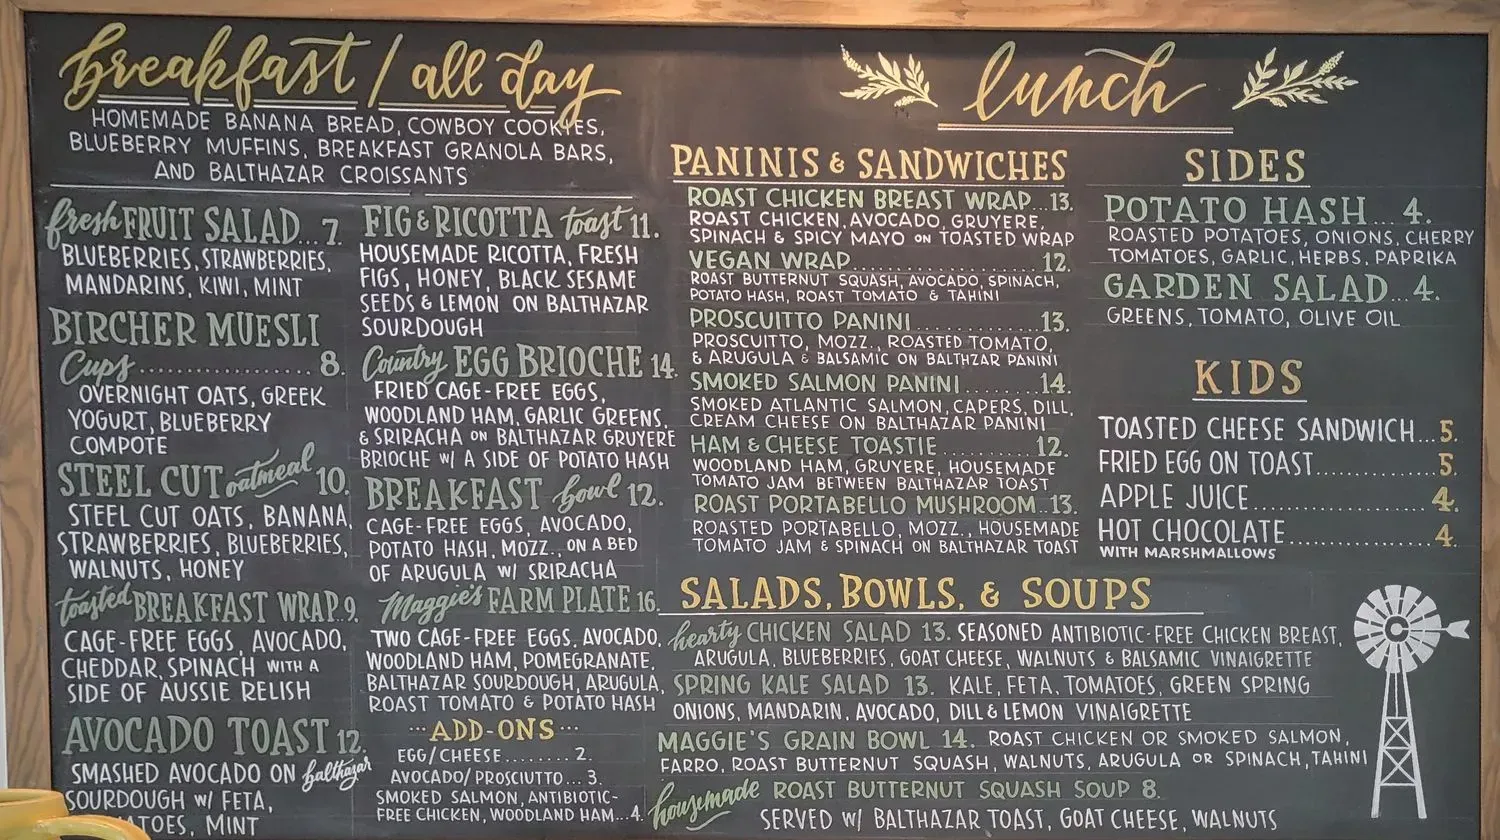 breakfast / all day
HOMEMADE BANANA BREAD, COWBOY COOKIES,
BLUEBERRY MUFFINS, BREAKFAST GRANOLA BARS,
AND BALTHAZAR CROISSANTS
fresh FRUIT SALAD... 7.
BLUEBERRIES, STRAWBERRIES,
MANDARINS, KIWI, MINT
BIRCHER MUESLI
Cups.................. 8.
OVERNIGHT OATS, GREEK
YOGURT, BLUEBERRY
COMPOTE
STEEL CUT oatmeal 10.
STEEL CUT OATS, BANANA,
STRAWBERRIES, BLUEBERRIES,
WALNUTS, HONEY
toasted BREAKFAST WRAP.9.
CAGE-FREE EGGS, AVOCADO,
CHEDDAR, SPINACH WITH A
SIDE OF AUSSIE RELISH
AVOCADO TOAST 12.
SMASHED AVOCADO ON balthazar
SOURDOUGH W/ FETA,
MINT
FIG & RICOTTA toast 11.
HOUSEMADE RICOTTA, FRESH
FIGS, HONEY, BLACK SESAME
SEEDS & LEMON ON BALTHAZAR
SOURDOUGH
Country EGG BRIOCHE 14.
FRIED CAGE-FREE EGGS,
WOODLAND HAM, GARLIC GREENS,
& SRIRACHA ON BALTHAZAR GRUYERE
BRIOCHE W/ A SIDE OF POTATO HASH
BREAKFAST bowl 12.
CAGE-FREE EGGS, AVOCADO,
POTATO HASH, MOZZ., ON A BED
OF ARUGULA W/ SRIRACHA
Maggie's FARM PLATE 16.
TWO CAGE-FREE EGGS, AVOCADO,
WOODLAND HAM, POMEGRANATE,
BALTHAZAR SOURDOUGH, ARUGULA,
ROAST TOMATO & POTATO HASH
...ADD-ONS...
EGG/CHEESE........ 2.
AVOCADO/PROSCIUTTO... 3.
SMOKED SALMON, ANTIBIOTIC-
FREE CHICKEN, WOODLAND HAM...4.
lunch
PANINIS & SANDWICHES
ROAST CHICKEN BREAST WRAP...13.
ROAST CHICKEN, AVOCADO, GRUYERE,
SPINACH & SPICY MAYO ON TOASTED WRAP
VEGAN WRAP..................... 12.
ROAST BUTTERNUT SQUASH, AVOCADO, SPINACH,
POTATO HASH, ROAST TOMATO & TAHINI
PROSCUITTO PANINI............. 13.
PROSCUITTO, MOZZ., ROASTED TOMATO,
& ARUGULA & BALSAMIC ON BALTHZAR PANINI
SMOKED SALMON PANINI......... 14.
SMOKED ATLANTIC SALMON, CAPERS, DILL,
CREAM CHEESE ON BALTHAZAR PANINI
HAM & CHEESE TOASTIE........... 12.
WOODLAND HAM, GRUYERE, HOUSEMADE
TOMATO JAM BETWEEN BALTHAZAR TOAST
ROAST PORTABELLO MUSHROOM..13.
ROASTED PORTABELLO, MOZZ., HOUSEMADE
TOMATO JAM & SPINACH ON BALTHAZAR TOAST
SIDES
POTATO HASH... 4.
ROASTED POTATOES, ONIONS, CHERRY
TOMATOES, GARLIC, HERBS, PAPRIKA
GARDEN SALAD...4.
GREENS, TOMATO, OLIVE OIL
KIDS
TOASTED CHEESE SANDWICH...5.
FRIED EGG ON TOAST............. 5.
APPLE JUICE...................... 4.
HOT CHOCOLATE.................. 4.
WITH MARSHMALLOWS
SALADS, BOWLS, & SOUPS
hearty CHICKEN SALAD 13. SEASONED ANTIBIOTIC-FREE CHICKEN BREAST,
ARUGULA, BLUEBERRIES, GOAT CHEESE, WALNUTS & BALSAMIC VINAIGRETTE
SPRING KALE SALAD 13. KALE, FETA, TOMATOES, GREEN SPRING
ONIONS, MANDARIN, AVOCADO, DILL & LEMON VINAIGRETTE
MAGGIE'S GRAIN BOWL 14. ROAST CHICKEN OR SMOKED SALMON,
FARRO, ROAST BUTTERNUT SQUASH, WALNUTS, ARUGULA OR SPINACH, TAHINI
housemade ROAST BUTTERNUT SQUASH SOUP 8.
SERVED W/ BALTHAZAR TOAST, GOAT CHEESE, WALNUTS